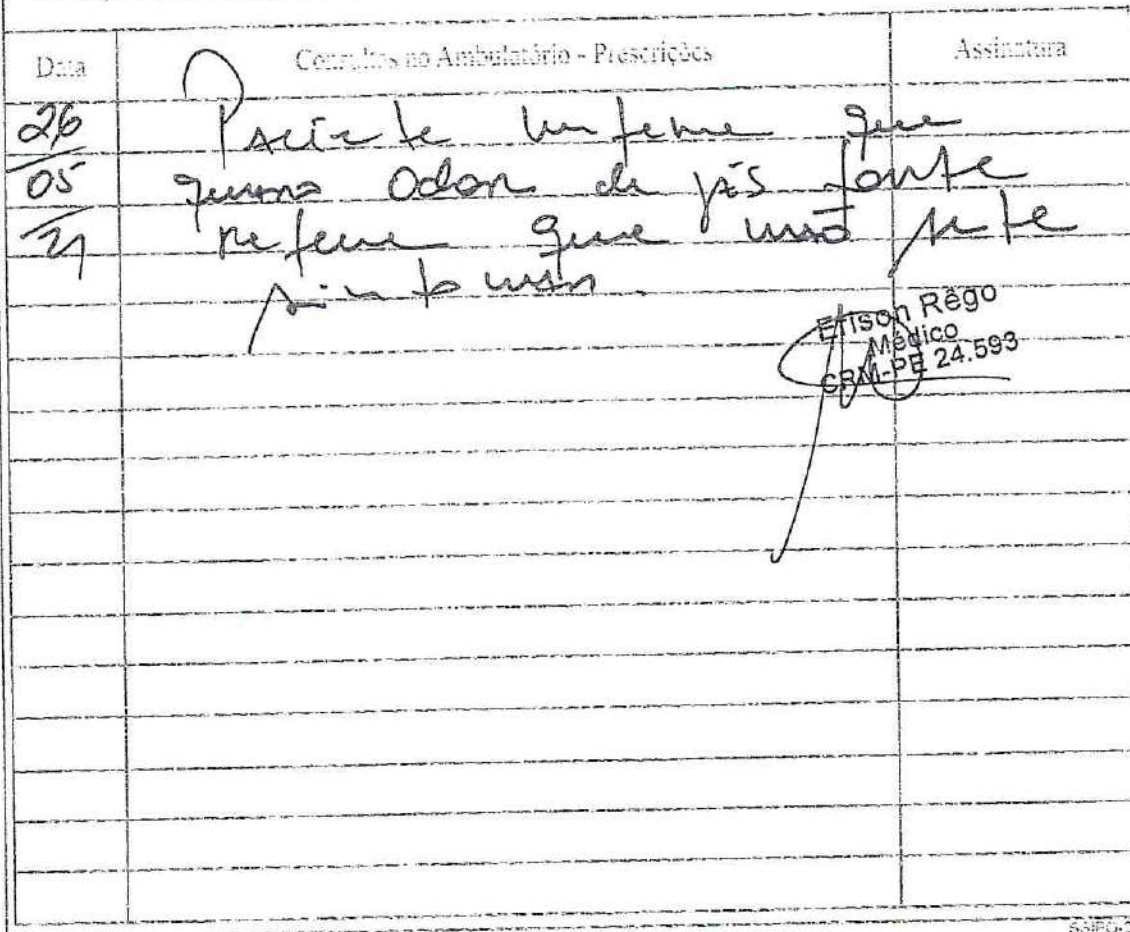 Data Consultas no Ambulatório - Prescrições Assinatura
26 Paciente refere que
05 odor de gás forte
21 refere que não sente
sintomas
Erison Rêgo
Médico
CRM-PE 24.593